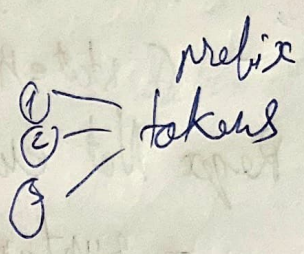 prefix
① 
② tokens
③